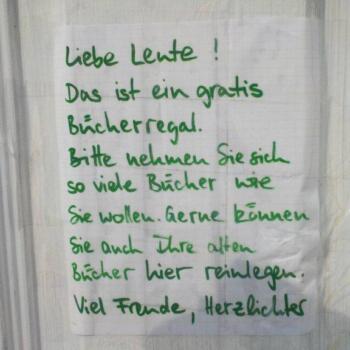 Liebe Leute !
Das ist ein gratis
Bücherregal.
Bitte nehmen Sie sich
so viele Bücher wie
Sie wollen. Gerne können
Sie auch Ihre alten
Bücher hier reinlegen.
Viel Freude, Herzlichter